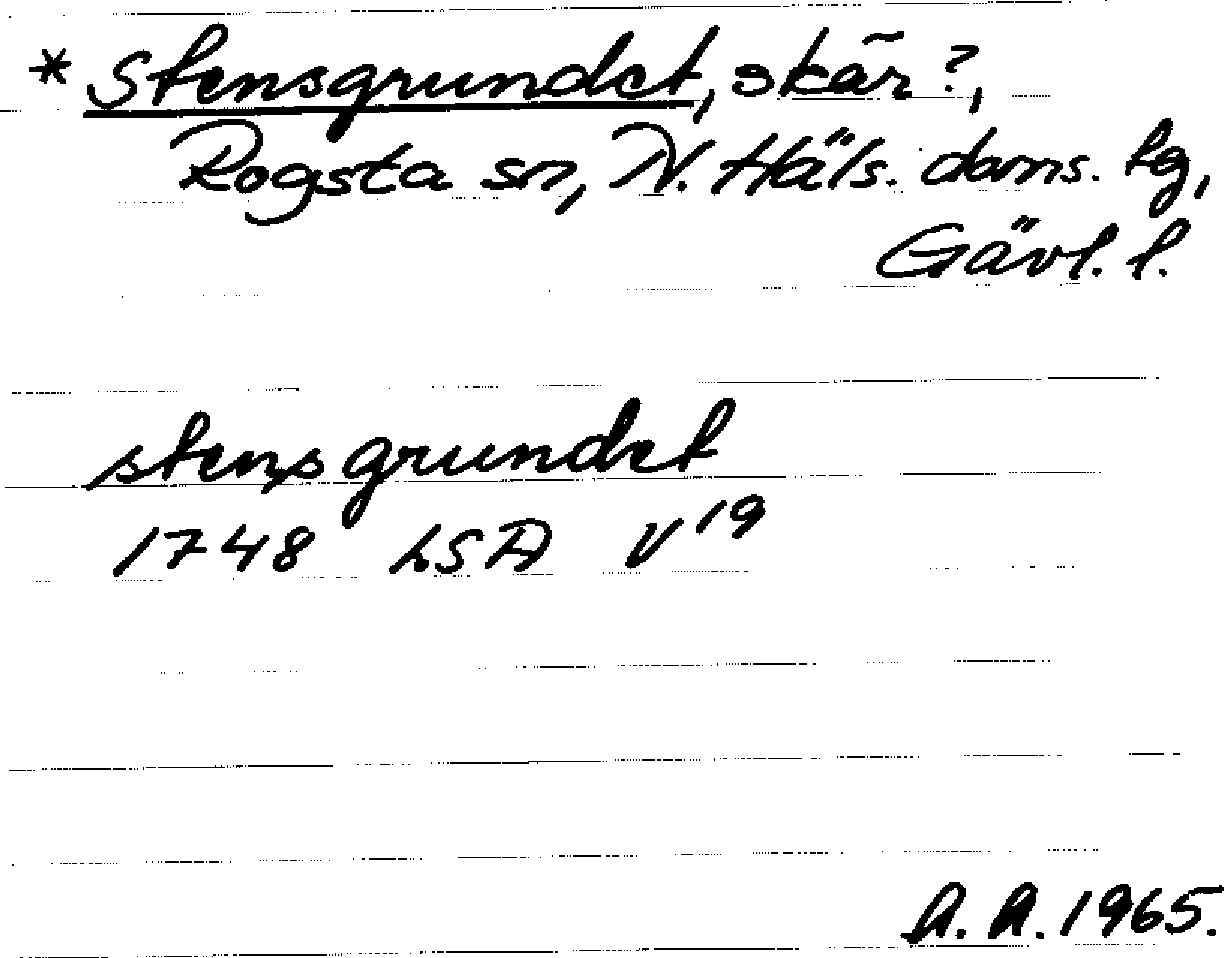 * Stensgrundet, skär?,
Rogsta sn, N. Häls. doms. lg,
Gävl. l.
stensgrundet
1748 LSA V19
A. A. 1965.